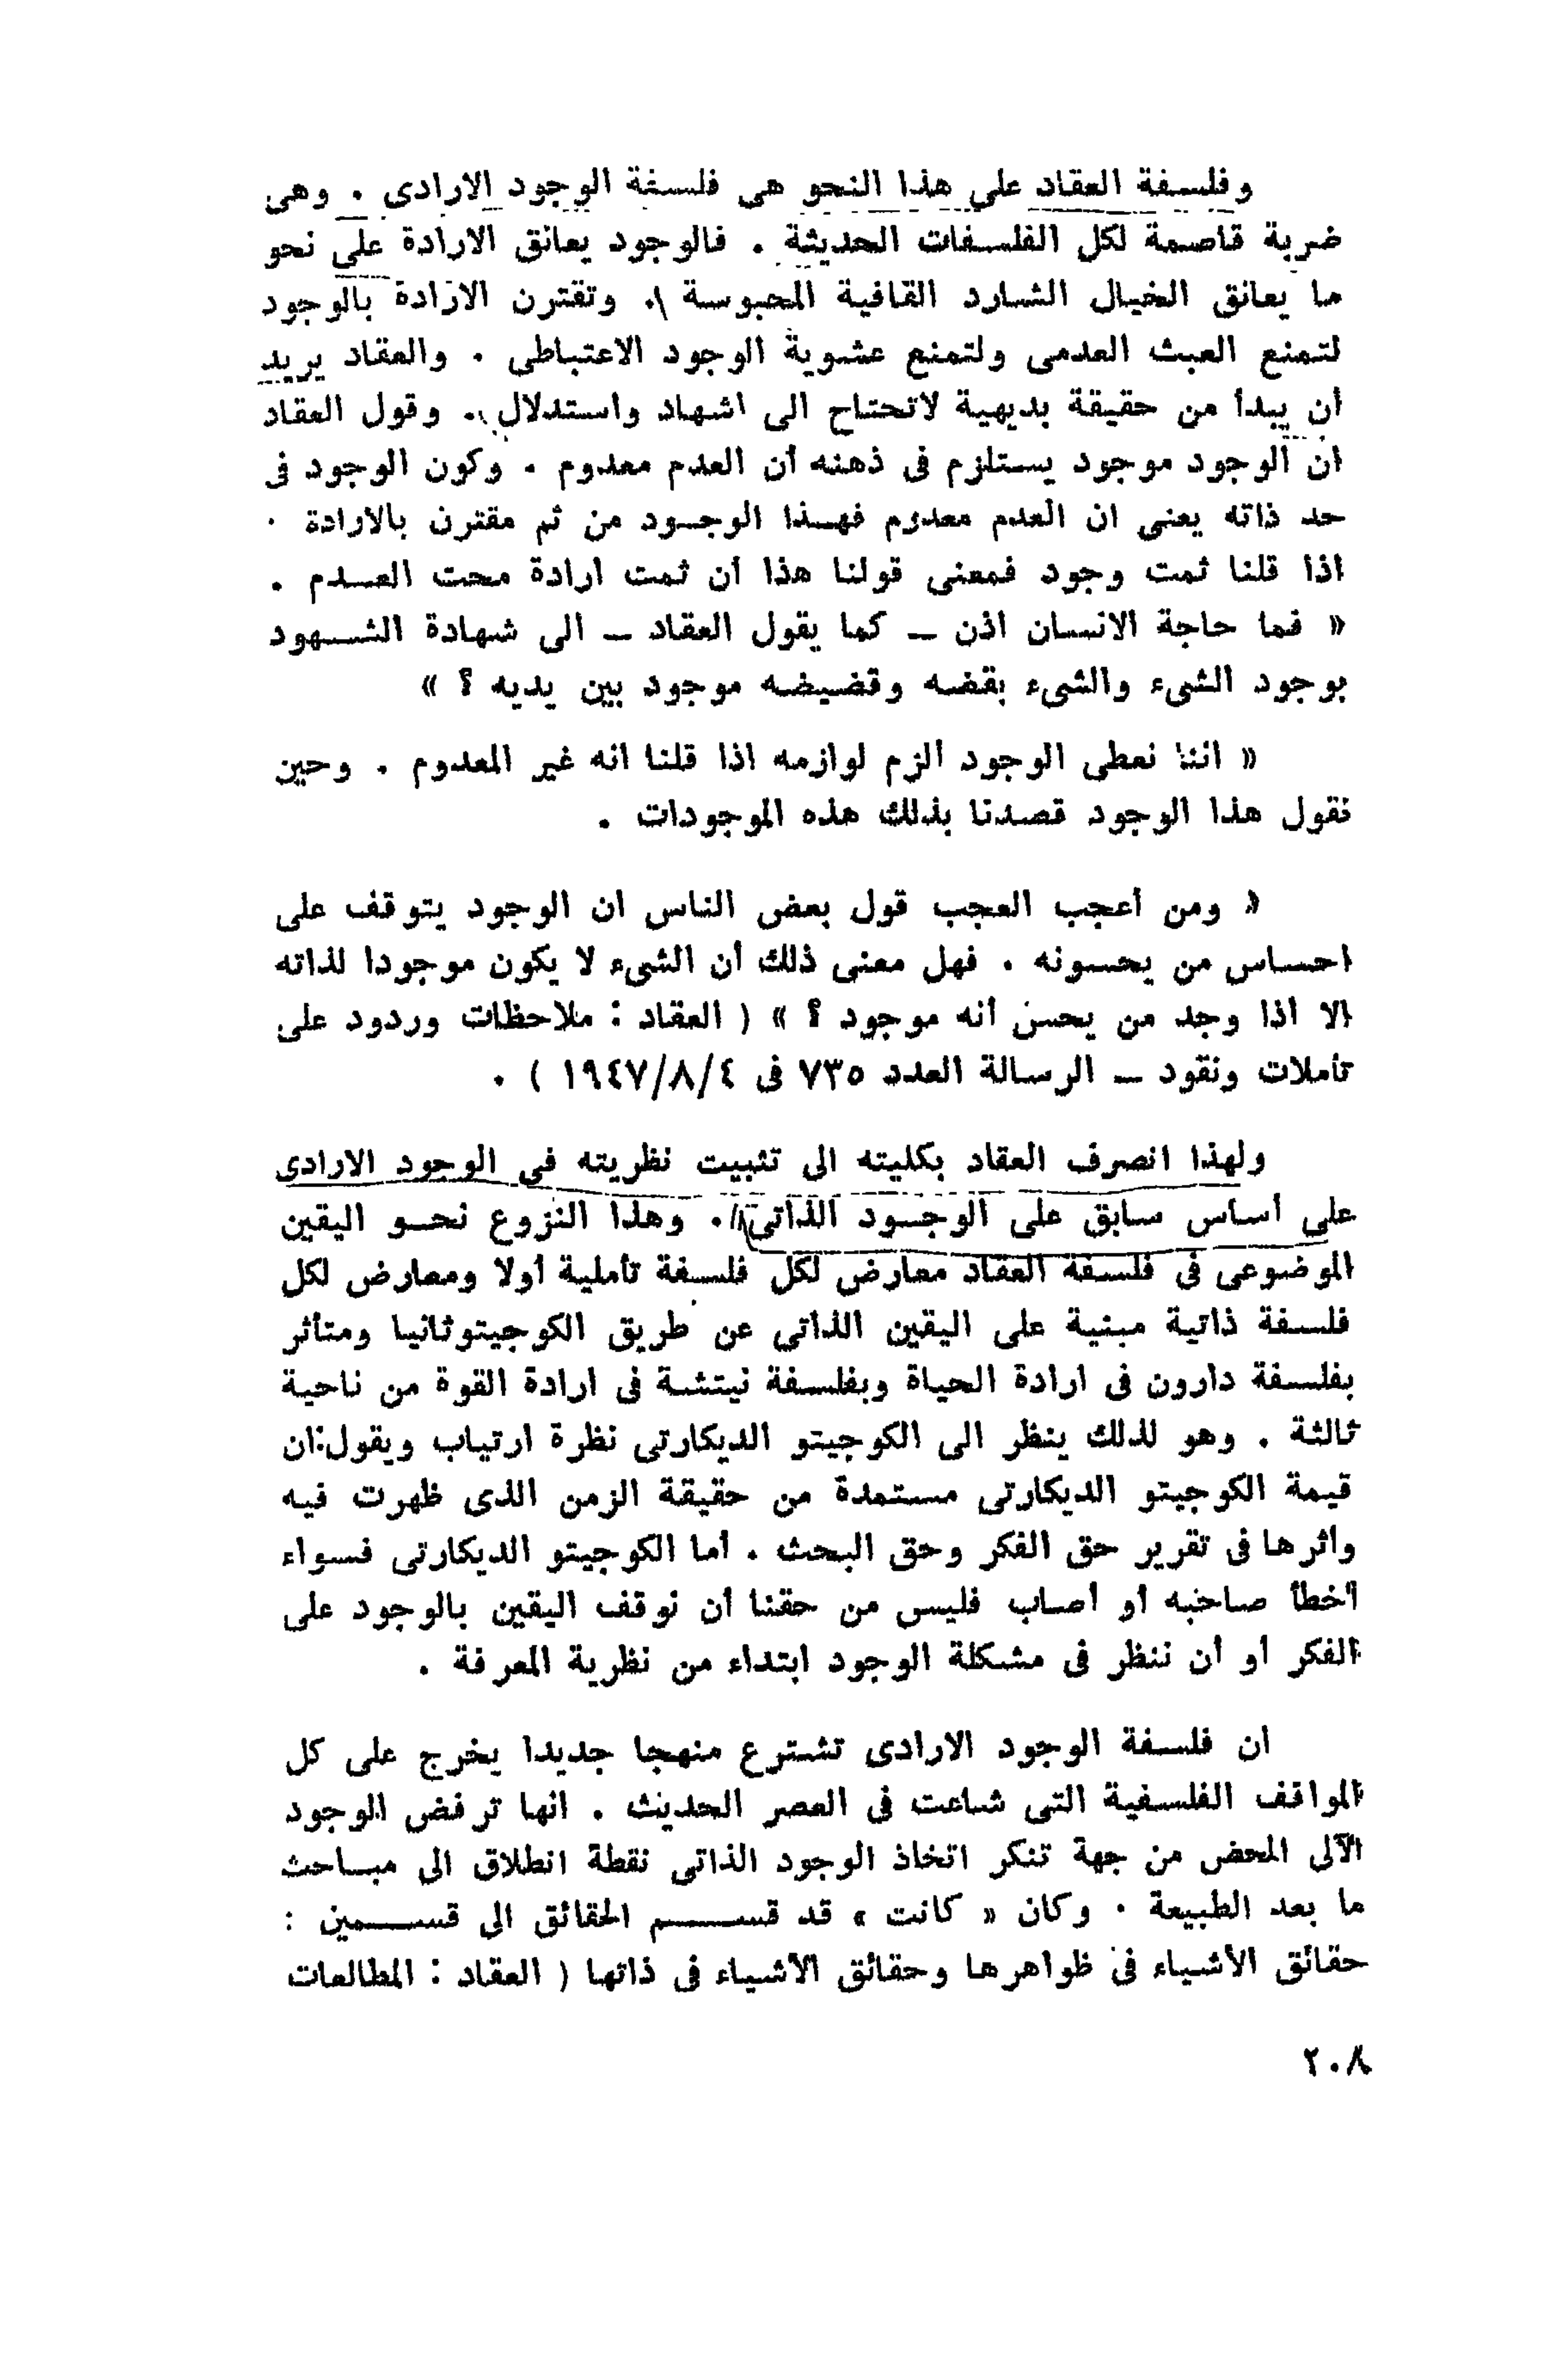 وفلسفة العقاد على هذا النحو هى فلسفة الوجود الارادى . وهى
ضربة قاصمة لكل الفلسفات الحديثة . فالوجود يعانق الارادة على نحو
ما يعانق الخيال الشارد القافية المحبوسة . وتقترن الارادة بالوجود
لتمنع العبث العدمى ولتمنع عشوية الوجود الاعتباطى . والعقاد يريد
أن يبدأ من حقيقة بديهية لاتحتاج الى اشهاد واستدلال . وقول العقاد
ان الوجود موجود يستلزم فى ذهنه أن العدم معدوم . وكون الوجود فى
حد ذاته يعنى ان العدم معدوم فهذا الوجود من ثم مقترن بالارادة .
اذا قلنا ثمت وجود فمعنى قولنا هذا أن ثمت ارادة محت العدم .
« فما حاجة الانسان اذن – كما يقول العقاد – الى شهادة الشهود
بوجود الشىء والشىء بقضه وقضيضه موجود بين يديه ؟ »
« اننا نعطى الوجود ألزم لوازمه اذا قلنا انه غير المعدوم . وحين
نقول هذا الوجود قصدنا بذلك هذه الموجودات .
« ومن أعجب العجب قول بعض الناس ان الوجود يتوقف على
احساس من يحسونه . فهل معنى ذلك أن الشىء لا يكون موجودا لذاته
الا اذا وجد من يحس أنه موجود ؟ » ( العقاد : ملاحظات وردود على
تأملات ونقود – الرسالة العدد ٧٣٥ فى ١٩٤٧/٨/٤ ) .
ولهذا انصرف العقاد بكليته الى تثبيت نظريته فى الوجود الارادى
على أساس سابق على الوجود الذاتى . وهذا النزوع نحو اليقين
الموضوعى فى فلسفة العقاد معارض لكل فلسفة تأملية أولا ومعارض لكل
فلسفة ذاتية مبنية على اليقين الذاتى عن طريق الكوجيتو ثانيا ومتأثر
بفلسفة دارون فى ارادة الحياة وبفلسفة نيتشة فى ارادة القوة من ناحية
ثالثة . وهو لذلك ينظر الى الكوجيتو الديكارتى نظرة ارتياب ويقول:ان
قيمة الكوجيتو الديكارتى مستمدة من حقيقة الزمن الذى ظهرت فيه
واثرها فى تقرير حق الفكر وحق البحث . أما الكوجيتو الديكارتى فسواء
أخطأ صاحبه أو أصاب فليس من حقنا أن نوقف اليقين بالوجود على
الفكر أو أن ننظر فى مشكلة الوجود ابتداء من نظرية المعرفة .
ان فلسفة الوجود الارادى تشترع منهجا جديدا يخرج على كل
المواقف الفلسفية التى شاعت فى العصر الحديث . انها ترفض الوجود
الآلى المحض من جهة تنكر اتخاذ الوجود الذاتى نقطة انطلاق الى مباحث
ما بعد الطبيعة . وكان « كانت » قد قسم الحقائق الى قسمين :
حقائق الأشياء فى ظواهرها وحقائق الأشياء فى ذاتها ( العقاد : المطالعات
٢٠٨